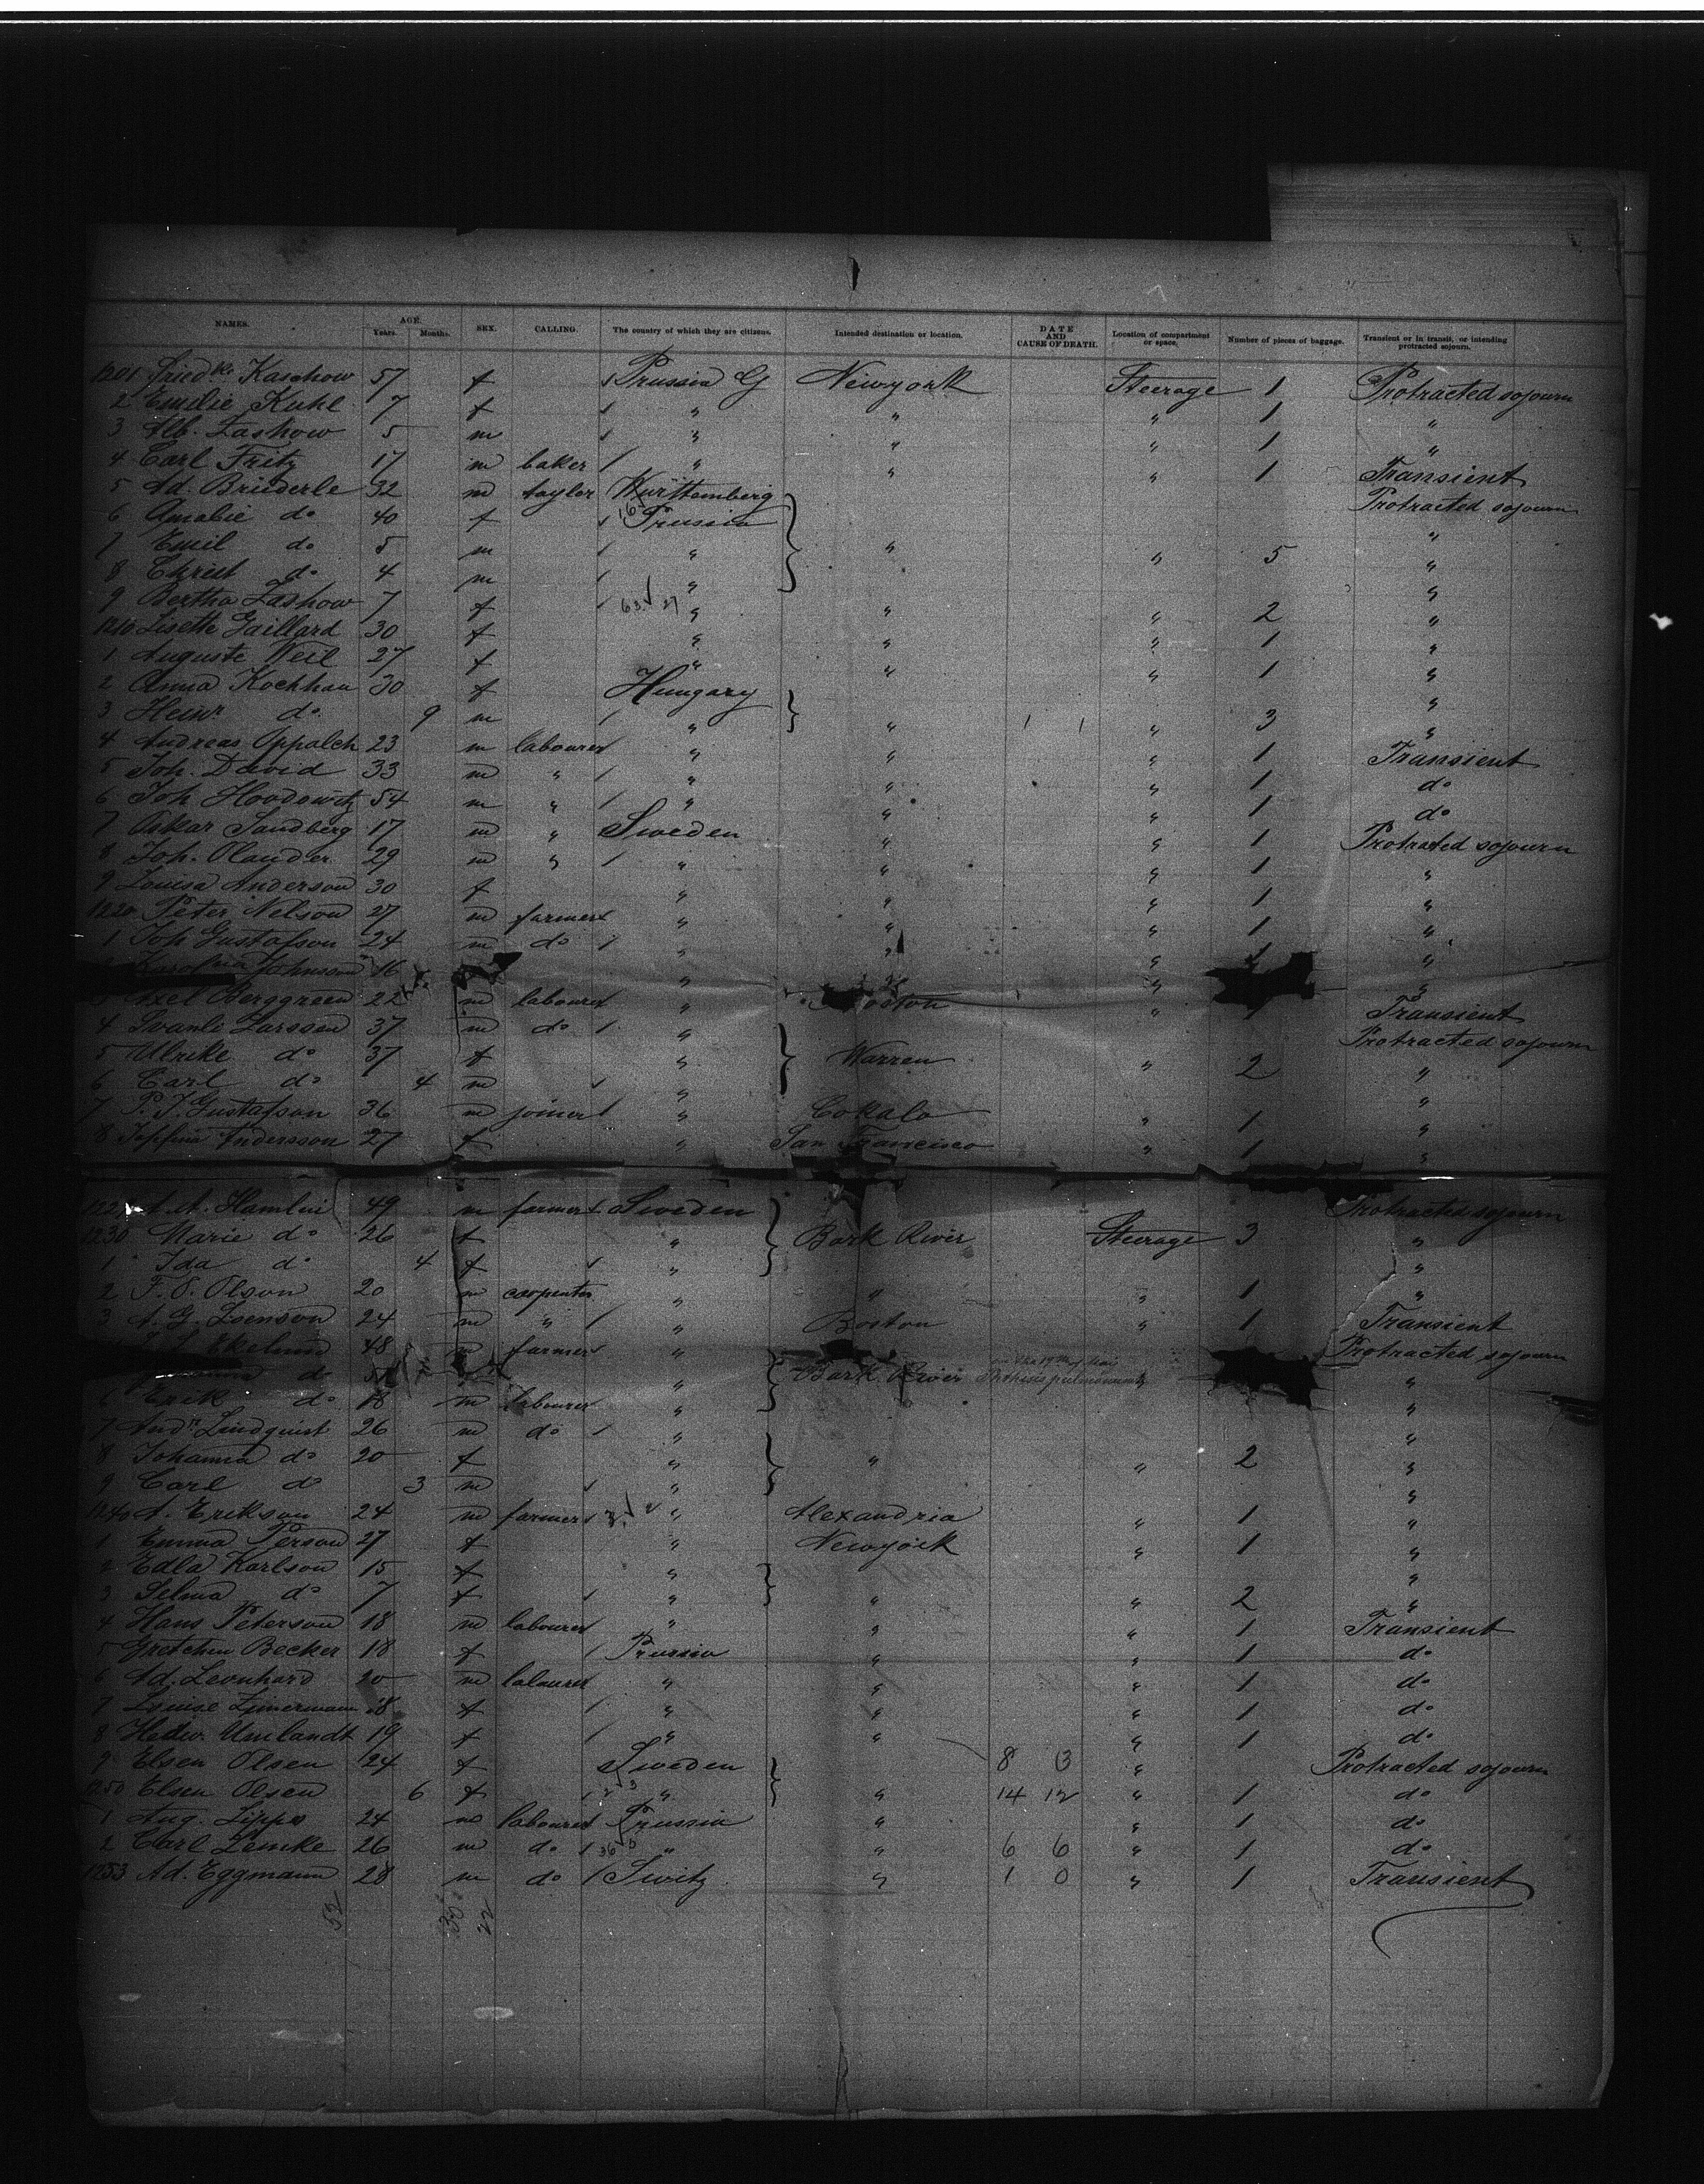 NAMES. AGE. Years. Months. SEX. CALLING. The country of which they are citizens. Intended destination or location. DATE AND CAUSE OF DEATH. Location of compartment or space. Number of pieces of baggage. Transient or in transit, or intending protracted sojourn.
1201 Kaschow 57 f Prussia G Newyork Steerage 1 Protracted sojourn
2 Emilie Kuhl 7 f " " " 1 "
3 Alb. Zashow 5 m " " " 1 "
4 Carl Fritz 17 m baker " " " 1 Transient
5 Ad. Brüderle 32 m tayler Württemberg Protracted sojourn
6 Amalie do 40 f Prussia "
7 Emil do 5 m " " " 5 "
8 Christ do 4 m " "
9 Bertha Zashow 7 f " " " 2 "
1210 Lisette Gaillard 30 f " " " 1 "
1 Auguste Weil 27 f " " " 1 "
2 Anna Kochhan 30 f Hungary "
3 Heinr. do 9 m " " " 3 "
4 Andreas Oppalch 23 m labourer " " " 1 Transient
5 Joh. David 33 m " " " " 1 do
6 Joh Hovdowitz 54 m " " " " 1 do
7 Oskar Sandberg 17 m " Sweden " " 1 Protracted sojourn
8 Joh. Olander 29 m " " " " 1 "
9 Louisa Anderson 30 f " " " 1 "
1220 Peter Nelson 27 m farmer " " " 1 "
1 Joh Gustafson 24 m do " " " 1 "
Johnson 16 " " " "
Axel Berggreen 22 m labourer " Boston " Transient
4 Larsson 37 m do " Protracted sojourn
5 Ulrike do 37 f " Warren " 2 "
6 Carl do 4 m " "
7 P. J. Gustafson 36 m joiner " Cokalo " 1 "
8 Andersson 27 f " San Francisco " 1 "
A. A. Hamlin 49 m farmer Sweden Protracted sojourn
1230 Marie do 26 f " Bark River Steerage 3 "
1 Ida do 4 f " "
2 F. O. Olson 20 m carpenter " " " 1 "
3 A. G. 24 m " " Boston " 1 Transient
Ekelund 48 m farmer " Protracted sojourn
do " Bark River Phthisis pulmonum " "
6 Erik do 18 m labourer " "
7 Andr. Lindquist 26 m do " "
8 Johanna do 20 f " " " 2 "
9 Carl do 3 m " "
1240 A. Erikson 24 m farmer " Alexandria " 1 "
1 Emma Person 27 f " Newyork " 1 "
2 Edla Karlson 15 f " "
3 Selma do 7 f " " " 2 "
4 Hans Peterson 18 m labourer " " " 1 Transient
5 Gretchen Becker 18 f Prussia " " 1 do
6 Ad. Leonhard 20 m labourer " " " 1 do
7 Louise Zimermann 18 f " " " 1 do
8 Hedw. Umlandt 19 f " " " 1 do
9 Elsen Olsen 24 f Sweden 8 3 " Protracted sojourn
1250 Elsen Olsen 6 f " " 14 12 " 1 do
1 Aug. Lippe 24 m labourer Prussia " " 1 do
2 Carl Lemke 26 m do " " 6 6 " 1 do
1253 Ad. Eggmann 28 m do Switz " 1 0 " 1 Transient
52 30 22